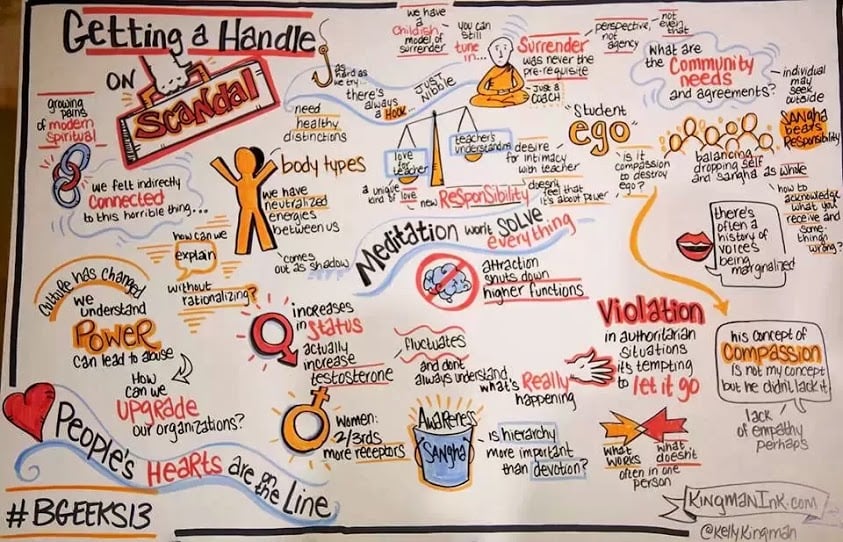 Getting a Handle
ON
SCANDAL
growing
pains
of modern
spiritual
we felt indirectly
connected
to this horrible thing...
as
hard as
we try...
there's
always
a HOOK...
JUST
Nibble
need
healthy
distinctions
body types
we have
neutralized
energies
between us
comes
out as shadow
we have
a
childish
model of
surrender
you can
still
tune
in...
Surrender
was never the
pre-requisite
just a
coach
perspective,
not
agency
not
even
that
what are
the Community
needs
and agreements?
individual
may
seek
outside
SANGHA
bears
Responsibility
"Student
ego"
is it
compassion
to destroy
ego?
love
for
teacher
teacher's
understanding
desire
for intimacy
with teacher
a unique
kind of love
new Responsibility
doesn't
feel that
it's about power
balancing
dropping self
and sangha as whole
how to
acknowledge
what you
receive and
some-
thing's
wrong?
there's
often a
history of
voices
being
marginalized
Meditation won't solve
everything
how can we
explain
without
rationalizing?
culture has changed
we
understand
POWER
can lead to abuse
How
can we
UPGRADE
our organizations?
attraction
shuts down
higher functions
increases
in status
actually
increase
testosterone
women:
2/3rds
more receptors
fluctuates
and dont
always understand
what's Really
happening
Violation
in authoritarian
situations
it's tempting
to let it go
his concept of
COMPASSION
is not my concept
but he didn't lack it
lack
of empathy
perhaps
Awareness
SANGHA
is hierarchy
more important
than devotion?
what
works
what
doesn't
often in one
person
People's Hearts are on the Line
#BGEEKS13
KINGMANINK.com
@kellykingman